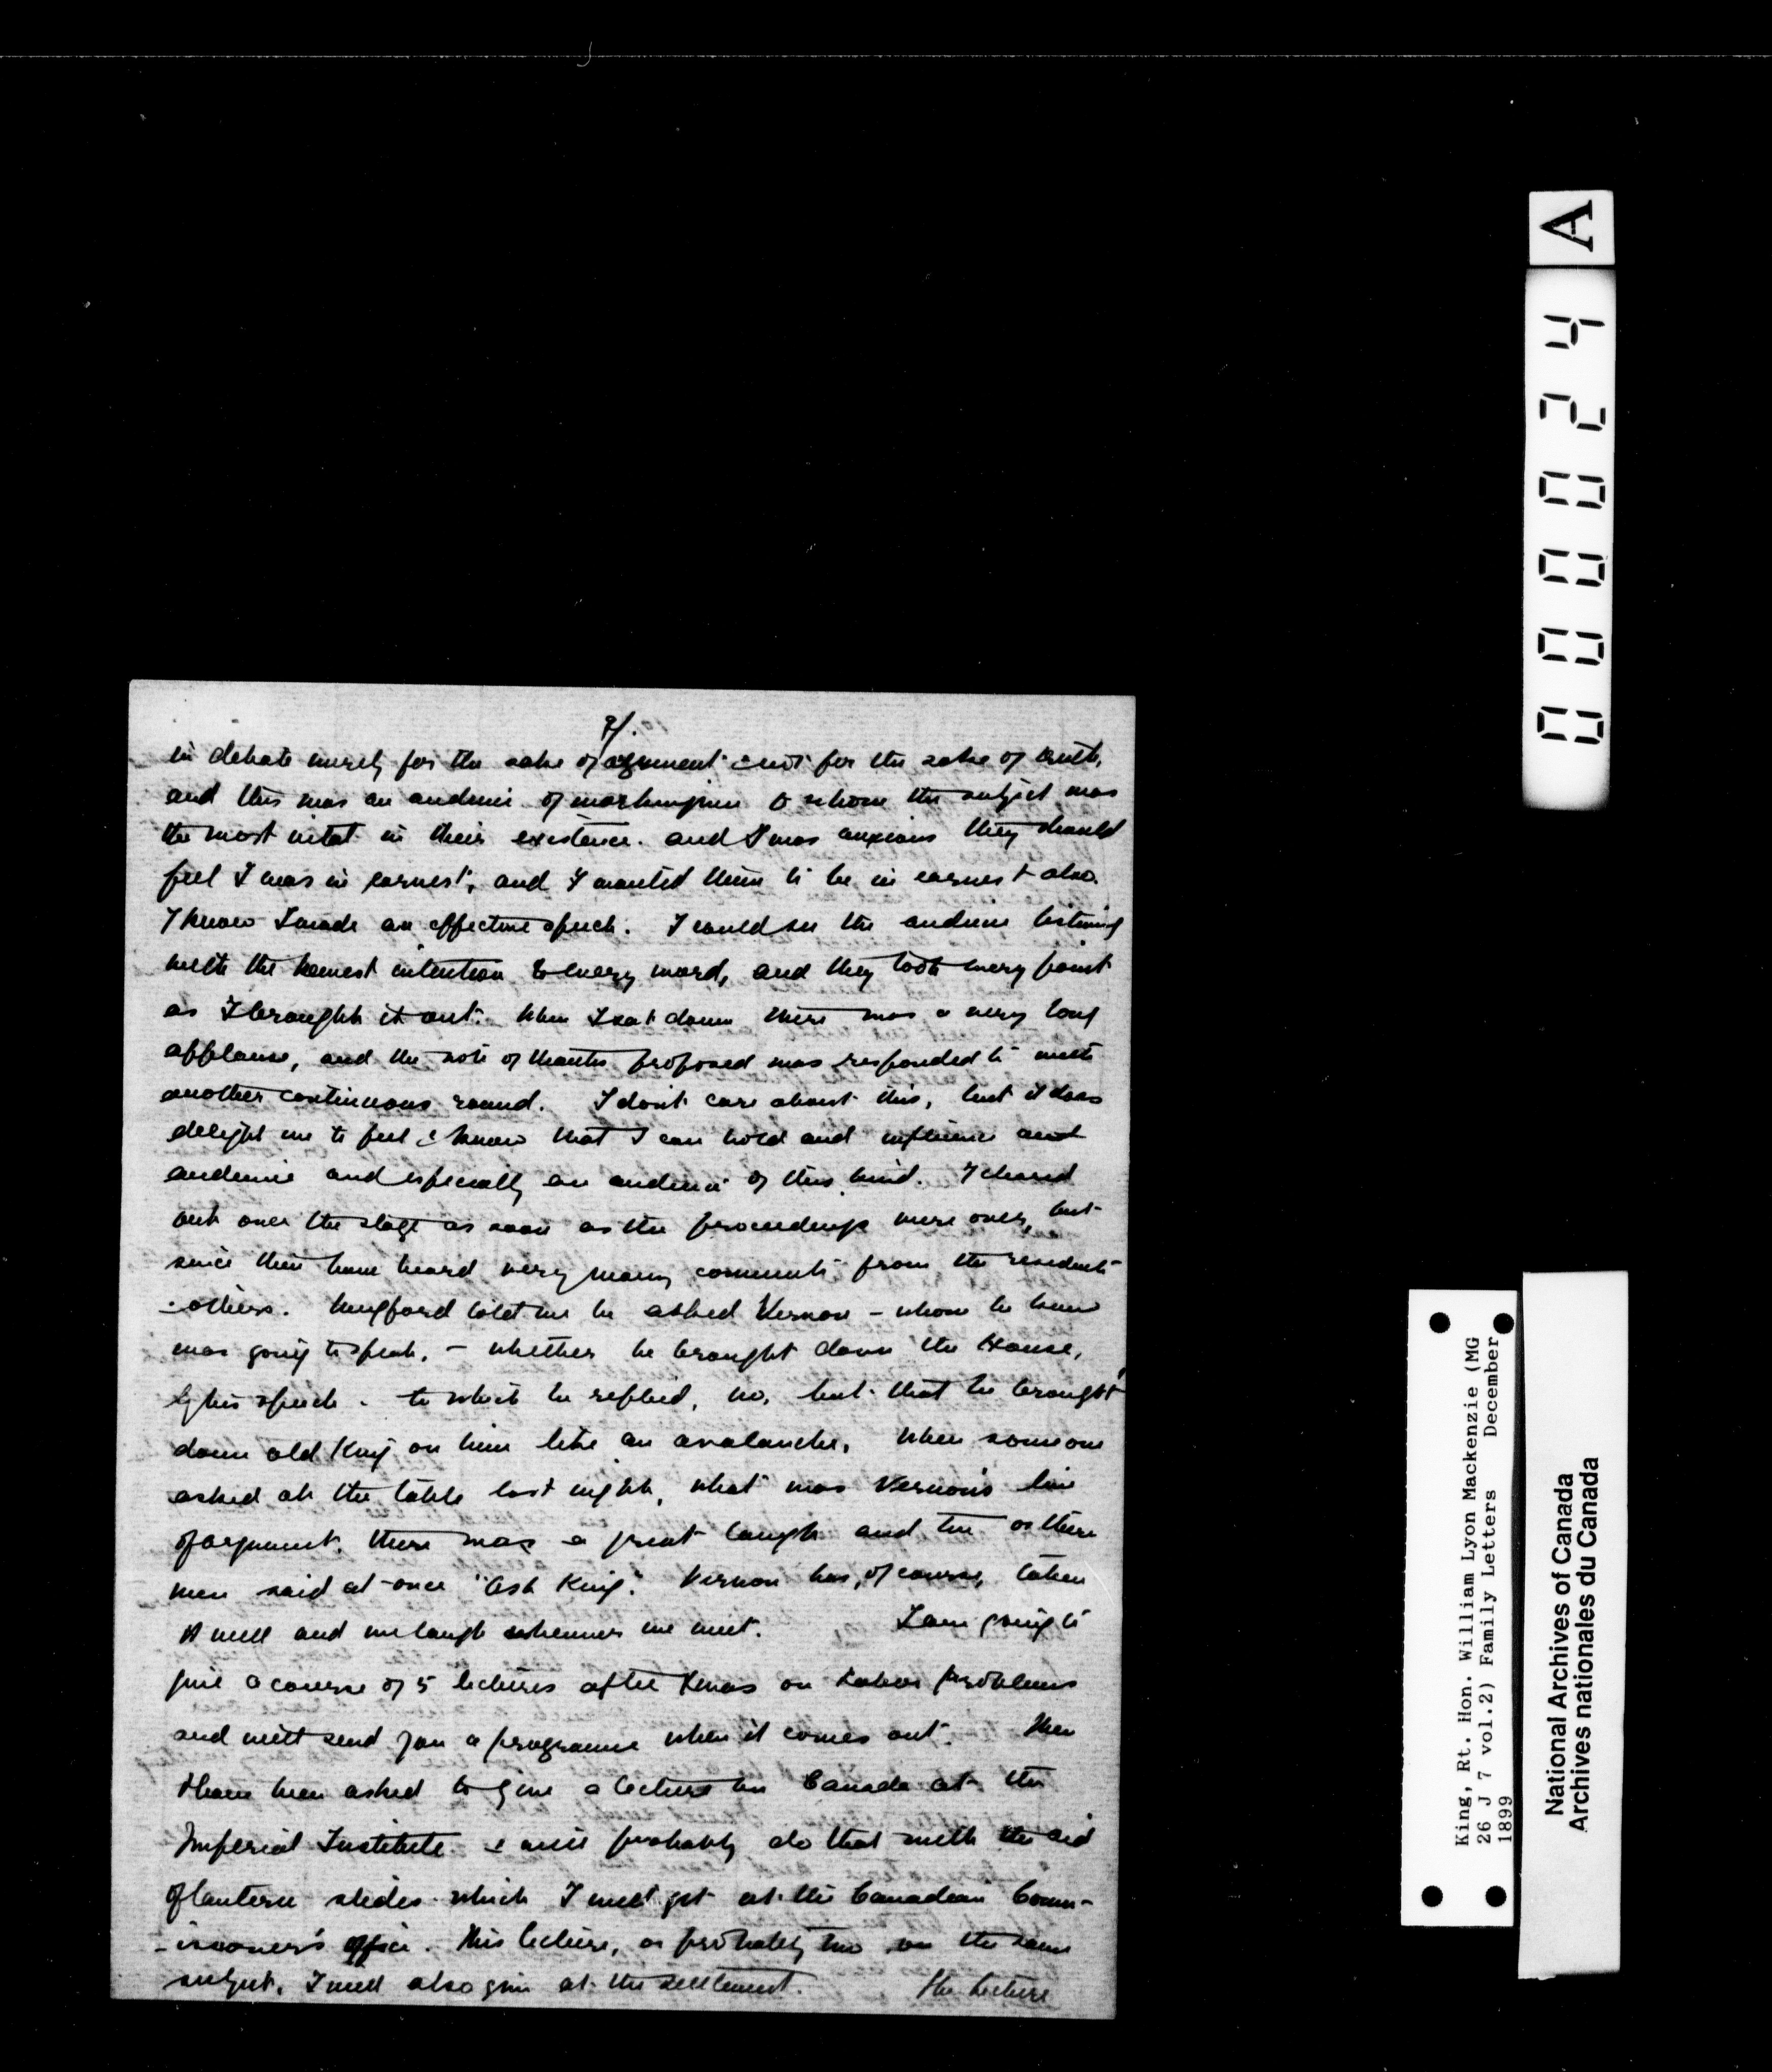 9/.
in debate merely for the sake of argument & not for the sake of truth,
and this was an audience of workingmen to whom the subject was
the most vital in their existence. and I was anxious they should
feel I was in earnest, and I wanted them to be in earnest also.
I know I made an effective speech. I could see the audience listening
with the keenest intention to every word, and they took every point
as I brought it out. When I sat down there was a very long
applause, and the vote of thanks proposed was responded to with
another continuous round. I don't care about this, but it does
delight me to feel & know that I can hold and influence and
audience and especially an audience of this kind. I cleared
out over the stage as soon as the proceedings were over, but
since then have heard very many comments from the residents
& others. told me he asked Vernon – whom he knew
was going to speak, – whether he brought down the House,
by his speech. to which he replied, no, but that he brought
down old King on him like an avalanche. When someone
asked at the table last night, what was Vernon's line
of argument. there was a great laugh and the other
men said at once "Ask King". Vernon has, of course, taken
it well and we laugh whenever we meet. I am going to
give a course of 5 lectures after Xmas on Labor problems
and will send you a programme when it comes out. Then
I have been asked to give a lecture on Canada at the
Imperial Institute & will probably do that with the aid
of lantern slides which I will get at the Canadian Comm-
-issioner's office. This lecture, or probably two on the same
subject, I will also give at the settlement. The lecture
A
000024
King, Rt. Hon. William Lyon Mackenzie (MG
26 J 7 vol.2) Family Letters December
1899
National Archives of Canada
Archives nationales du Canada